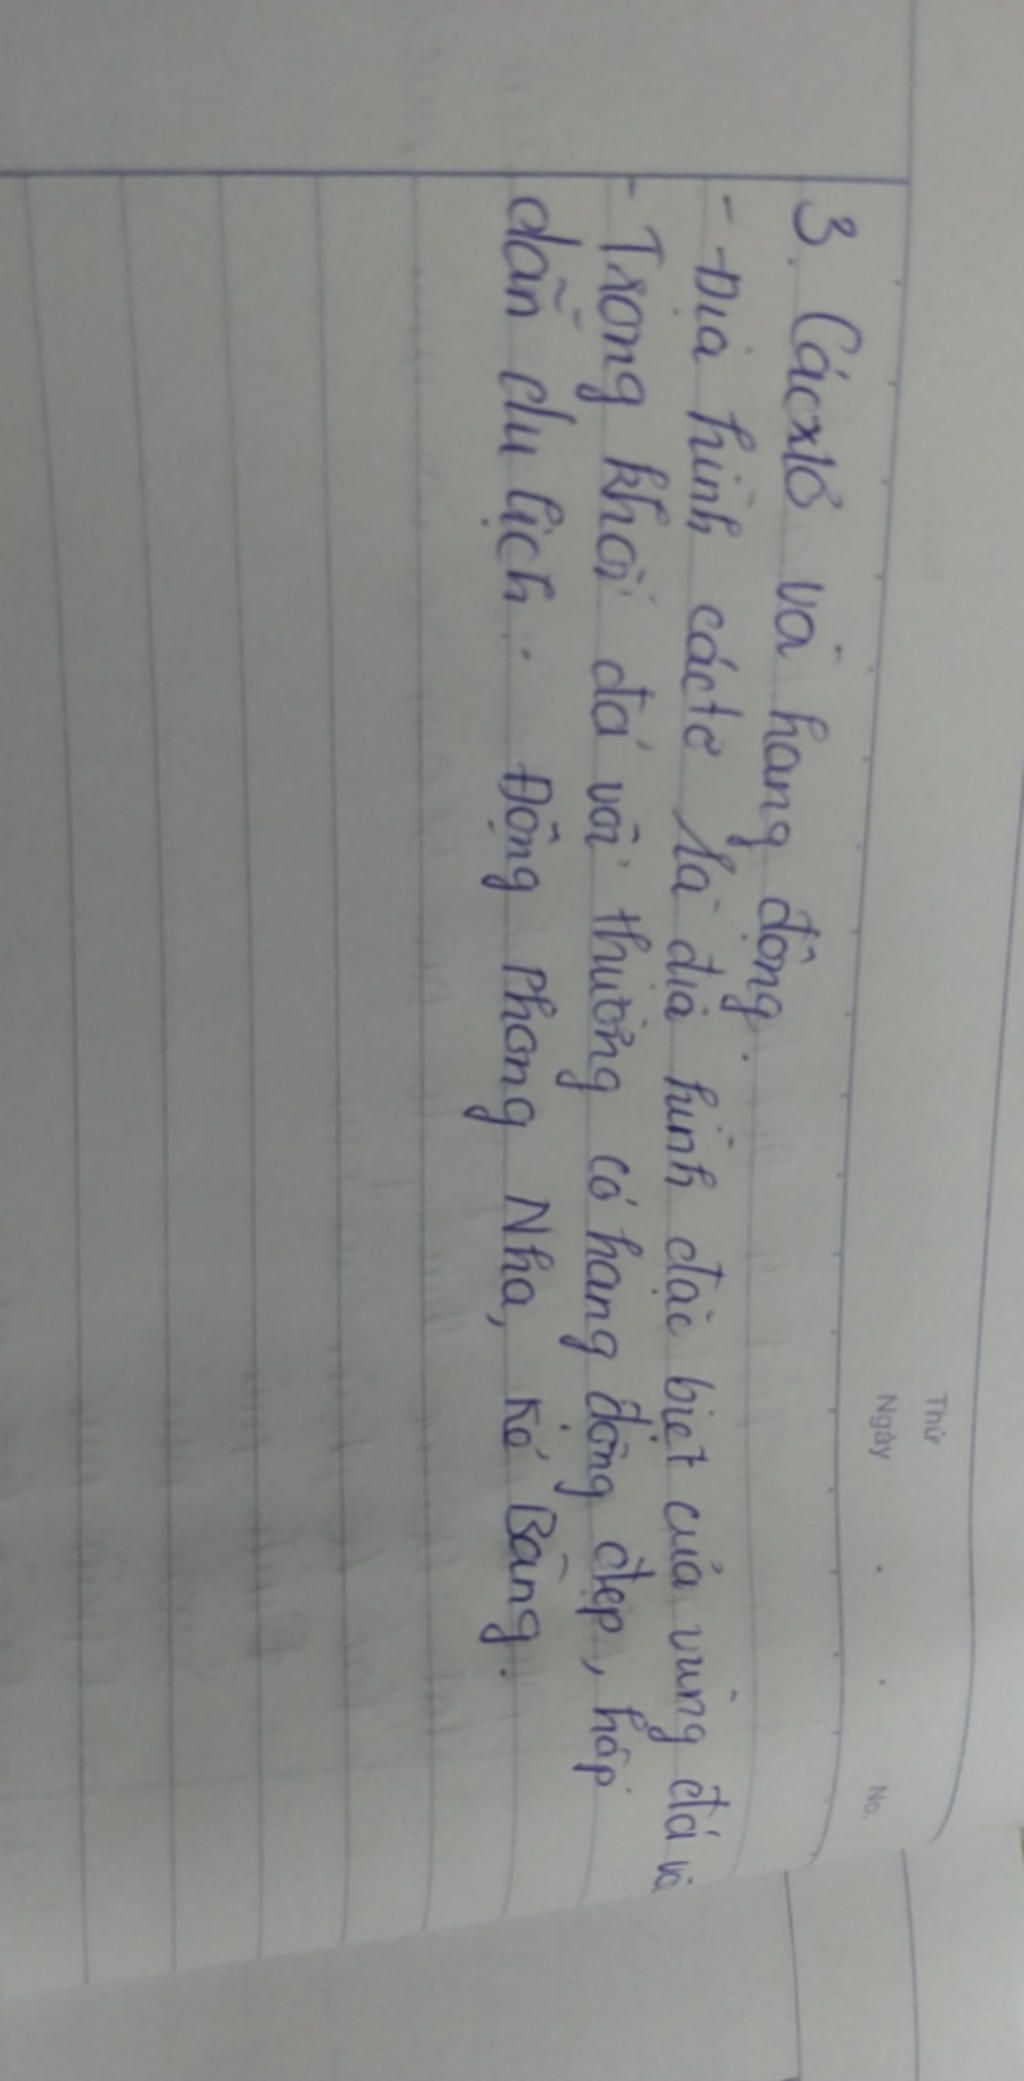 Thứ
Ngày . . No.
3. Cácxtơ và hang động.
- Địa hình cáctơ là địa hình đặc biệt của vùng đá vôi
- Trong khối đá vôi thường có hang động đẹp, hấp
dẫn du lịch: Động Phong Nha, Kẻ Bàng.